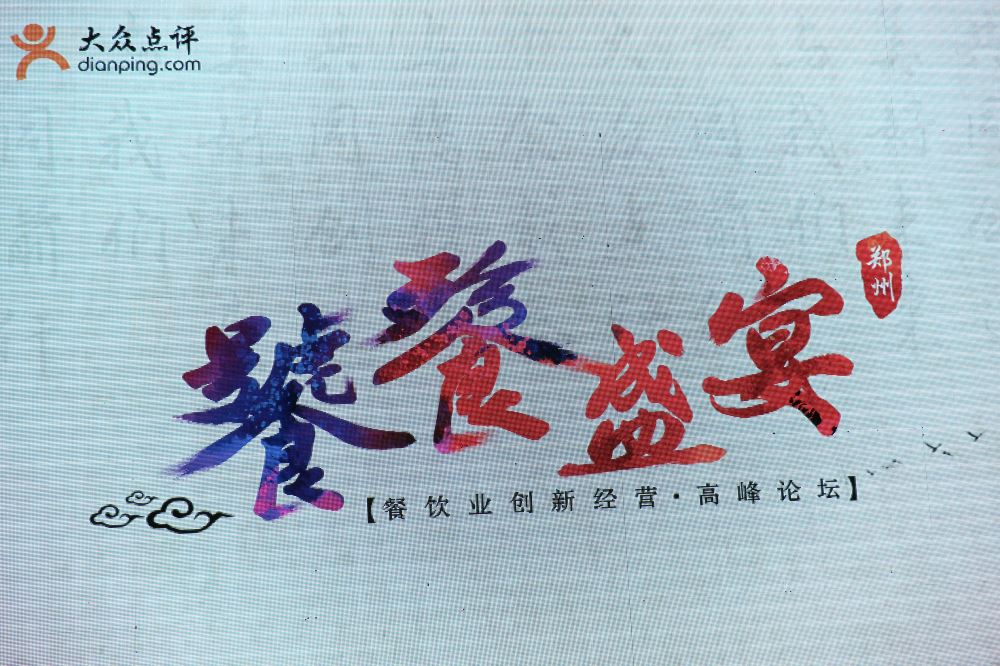 大众点评
dianping.com
饕餮盛宴
郑州
【餐饮业创新经营·高峰论坛】